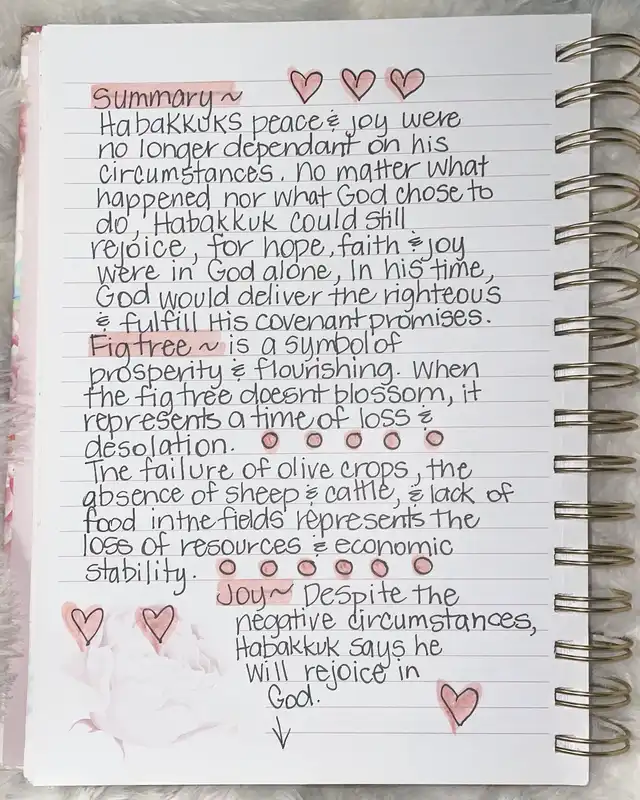 Summary ~
Habakkuks peace & joy were
no longer dependant on his
circumstances. No matter what
happened nor what God chose to
do, Habakkuk could still
rejoice, for hope, faith & joy
were in God alone, In his time,
God would deliver the righteous
& fulfill His covenant promises.
Figtree ~ is a symbol of
prosperity & flourishing. When
the fig tree doesnt blossom, it
represents a time of loss &
desolation.
The failure of olive crops, the
absence of sheep & cattle, & lack of
food in the fields represents the
loss of resources & economic
stability.
Joy ~ Despite the
negative circumstances,
Habakkuk says he
will rejoice in
God.